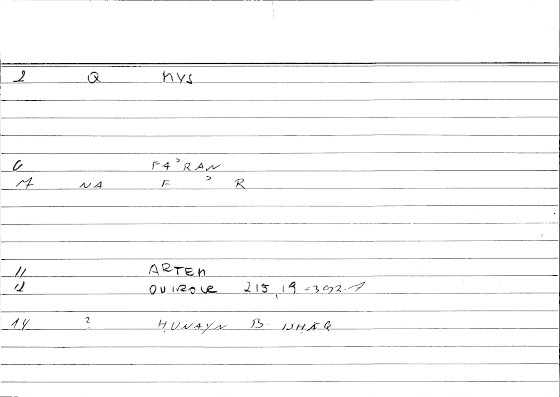 2 Q MYS
6 FA'RAN
M NA F ' R
11 ARTEM
12 OVIROLE 215,19 = 392.1
14 ? HUNAYN B. ISHAQ